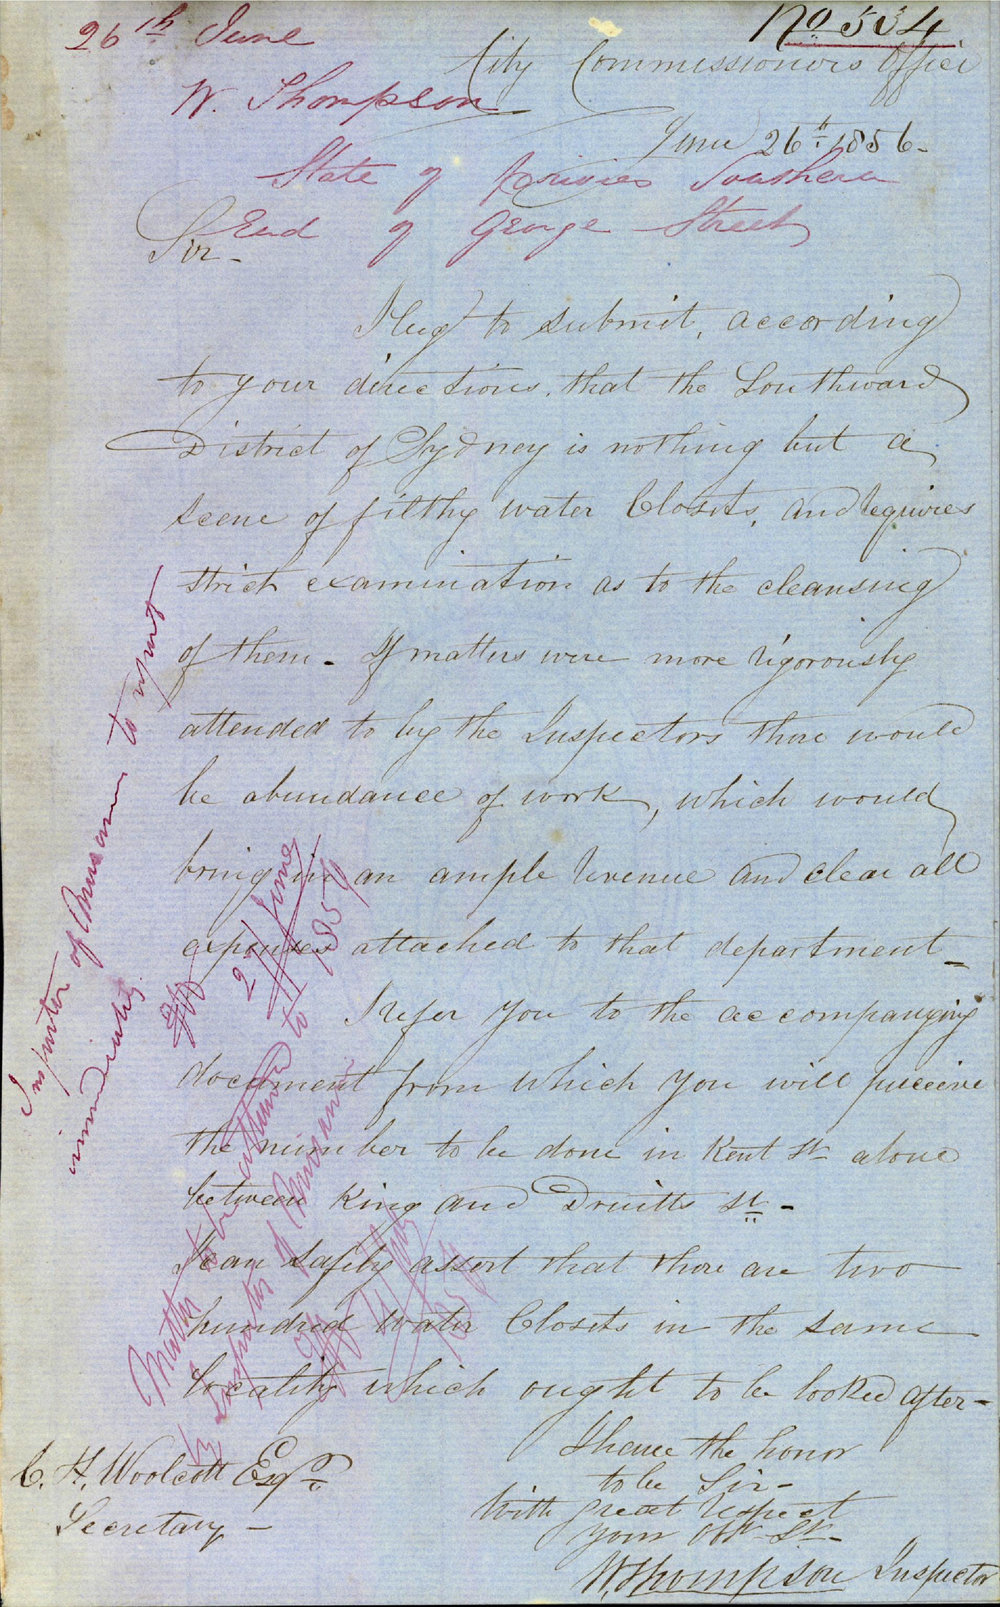 No 534
26th June
City Commissioners Office
W. Thompson
June 26th 1856-
State of Privies Southern
End of George Street
Sir-
I beg to submit, according
to your directions, that the Southward
District of Sydney is nothing but a
scene of filthy water Closets, and requires
strict examination as to the cleansing
of them - If matters were more rigorously
attended to by the Inspectors there would
be abundance of work, which would
bring in an ample revenue and clear all
expenses attached to that department_
I refer you to the accompanying
document from which you will perceive
the number to be done in Kent St alone
between King and Druitts St-
I can safely assert that there are two
hundred Water Closets in the same
locality which ought to be looked after-
I have the honor
to be Sir-
With great respect
Your Obt St-
W. Thompson Inspector
C. H. Woolcott Esqre
Secretary-
Inspector of Nuisances to report
immediately
2 June
Matter to be attended to
by Inspector of Nuisances